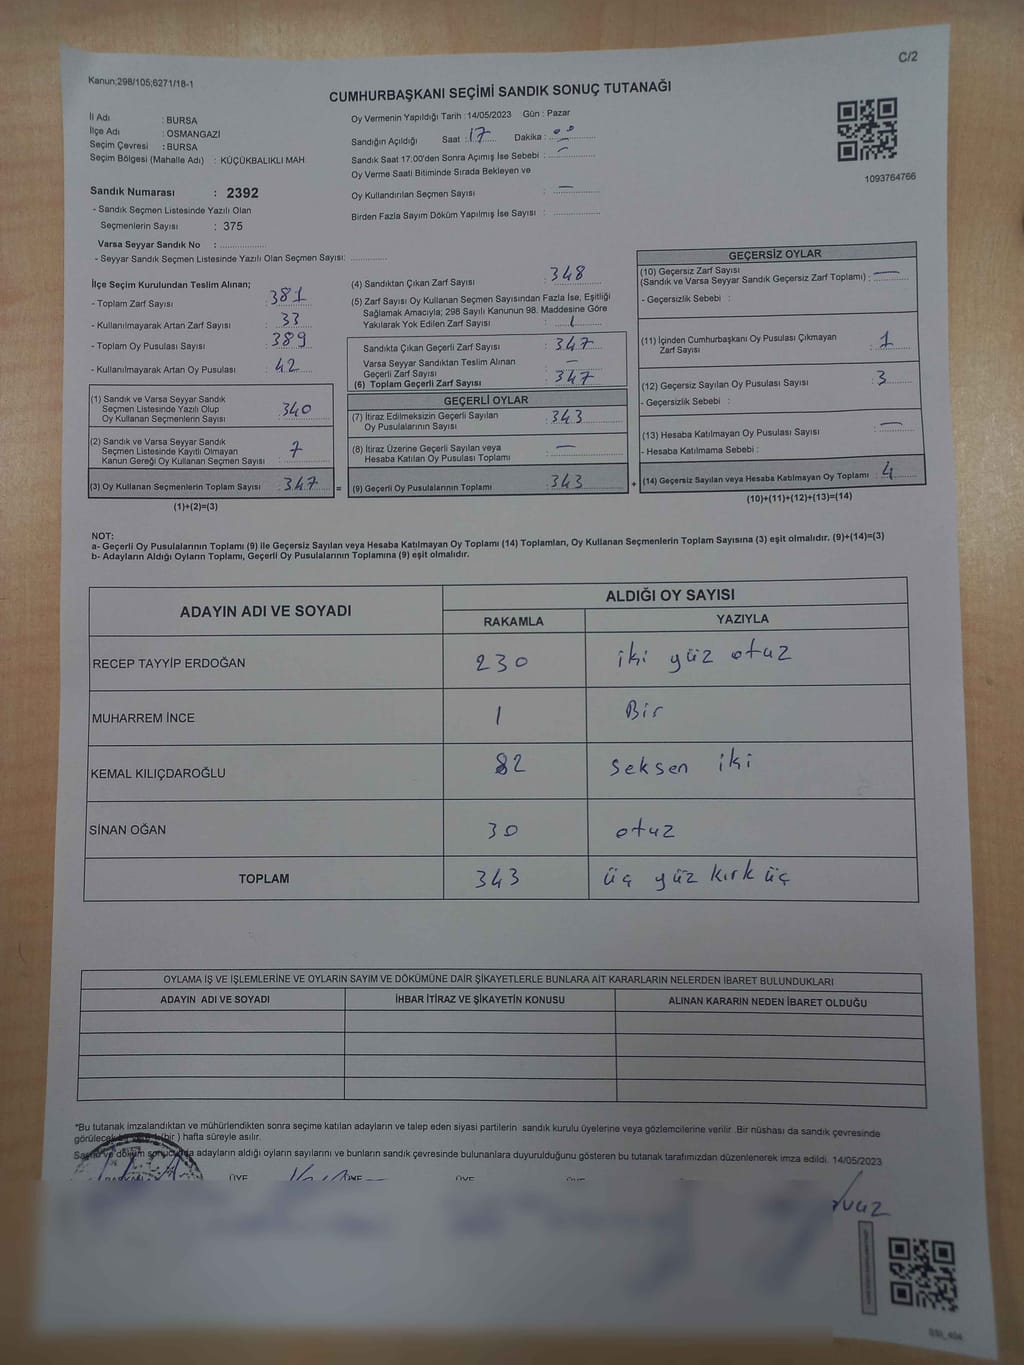 C/2
Kanun:298/105;6271/18-1
CUMHURBAŞKANI SEÇİMİ SANDIK SONUÇ TUTANAĞI
İl Adı : BURSA
İlçe Adı : OSMANGAZİ
Seçim Çevresi : BURSA
Seçim Bölgesi (Mahalle Adı) : KÜÇÜKBALIKLI MAH.
Sandık Numarası : 2392
- Sandık Seçmen Listesinde Yazılı Olan
Seçmenlerin Sayısı : 375
Varsa Seyyar Sandık No : ....................
- Seyyar Sandık Seçmen Listesinde Yazılı Olan Seçmen Sayısı: ...............
Oy Vermenin Yapıldığı Tarih : 14/05/2023 Gün : Pazar
Sandığın Açıldığı Saat : 17 Dakika : 00
Sandık Saat 17.00'den Sonra Açımış İse Sebebi : —
Oy Verme Saati Bitiminde Sırada Bekleyen ve
Oy Kullandırılan Seçmen Sayısı : —
Birden Fazla Sayım Döküm Yapılmış İse Sayısı : ....................
1093764766
İlçe Seçim Kurulundan Teslim Alınan;
- Toplam Zarf Sayısı : 381
- Kullanılmayarak Artan Zarf Sayısı : 33
- Toplam Oy Pusulası Sayısı : 389
- Kullanılmayarak Artan Oy Pusulası : 42
(1) Sandık ve Varsa Seyyar Sandık
Seçmen Listesinde Yazılı Olup
Oy Kullanan Seçmenlerin Sayısı : 340
(2) Sandık ve Varsa Seyyar Sandık
Seçmen Listesinde Kayıtlı Olmayan
Kanun Gereği Oy Kullanan Seçmen Sayısı : 7
(3) Oy Kullanan Seçmenlerin Toplam Sayısı : 347 =
(1)+(2)=(3)
(4) Sandıktan Çıkan Zarf Sayısı : 348
(5) Zarf Sayısı Oy Kullanan Seçmen Sayısından Fazla İse, Eşitliği
Sağlamak Amacıyla; 298 Sayılı Kanunun 98. Maddesine Göre
Yakılarak Yok Edilen Zarf Sayısı : 1
Sandıkta Çıkan Geçerli Zarf Sayısı : 347
Varsa Seyyar Sandıktan Teslim Alınan
Geçerli Zarf Sayısı : —
(6) Toplam Geçerli Zarf Sayısı : 347
GEÇERLİ OYLAR
(7) İtiraz Edilmeksizin Geçerli Sayılan
Oy Pusulalarının Sayısı : 343
(8) İtiraz Üzerine Geçerli Sayılan veya
Hesaba Katılan Oy Pusulası Toplamı : —
(9) Geçerli Oy Pusulalarının Toplamı : 343 +
GEÇERSİZ OYLAR
(10) Geçersiz Zarf Sayısı
(Sandık ve Varsa Seyyar Sandık Geçersiz Zarf Toplamı) : —
- Geçersizlik Sebebi :
(11) İçinden Cumhurbaşkanı Oy Pusulası Çıkmayan
Zarf Sayısı : 1
(12) Geçersiz Sayılan Oy Pusulası Sayısı : 3
- Geçersizlik Sebebi :
(13) Hesaba Katılmayan Oy Pusulası Sayısı : —
- Hesaba Katılmama Sebebi :
(14) Geçersiz Sayılan veya Hesaba Katılmayan Oy Toplamı : 4
(10)+(11)+(12)+(13)=(14)
NOT:
a- Geçerli Oy Pusulalarının Toplamı (9) ile Geçersiz Sayılan veya Hesaba Katılmayan Oy Toplamı (14) Toplamları, Oy Kullanan Seçmenlerin Toplam Sayısına (3) eşit olmalıdır. (9)+(14)=(3)
b- Adayların Aldığı Oyların Toplamı, Geçerli Oy Pusulalarının Toplamına (9) eşit olmalıdır.
ADAYIN ADI VE SOYADI ALDIĞI OY SAYISI
RAKAMLA YAZIYLA
RECEP TAYYİP ERDOĞAN 230 iki yüz otuz
MUHARREM İNCE 1 Bir
KEMAL KILIÇDAROĞLU 82 seksen iki
SİNAN OĞAN 30 otuz
TOPLAM 343 üç yüz kırk üç
OYLAMA İŞ VE İŞLEMLERİNE VE OYLARIN SAYIM VE DÖKÜMÜNE DAİR ŞİKAYETLERLE BUNLARA AİT KARARLARIN NELERDEN İBARET BULUNDUKLARI
ADAYIN ADI VE SOYADI İHBAR İTİRAZ VE ŞİKAYETİN KONUSU ALINAN KARARIN NEDEN İBARET OLDUĞU
*Bu tutanak imzalandıktan ve mühürlendikten sonra seçime katılan adayların ve talep eden siyasi partilerin sandık kurulu üyelerine veya gözlemcilerine verilir .Bir nüshası da sandık çevresinde
görülecek (bir ) hafta süreyle asılır.
ve döküm sonucunda adayların aldığı oyların sayılarını ve bunların sandık çevresinde bulunanlara duyurulduğunu gösteren bu tutanak tarafımızdan düzenlenerek imza edildi. 14/05/2023
ÜYE